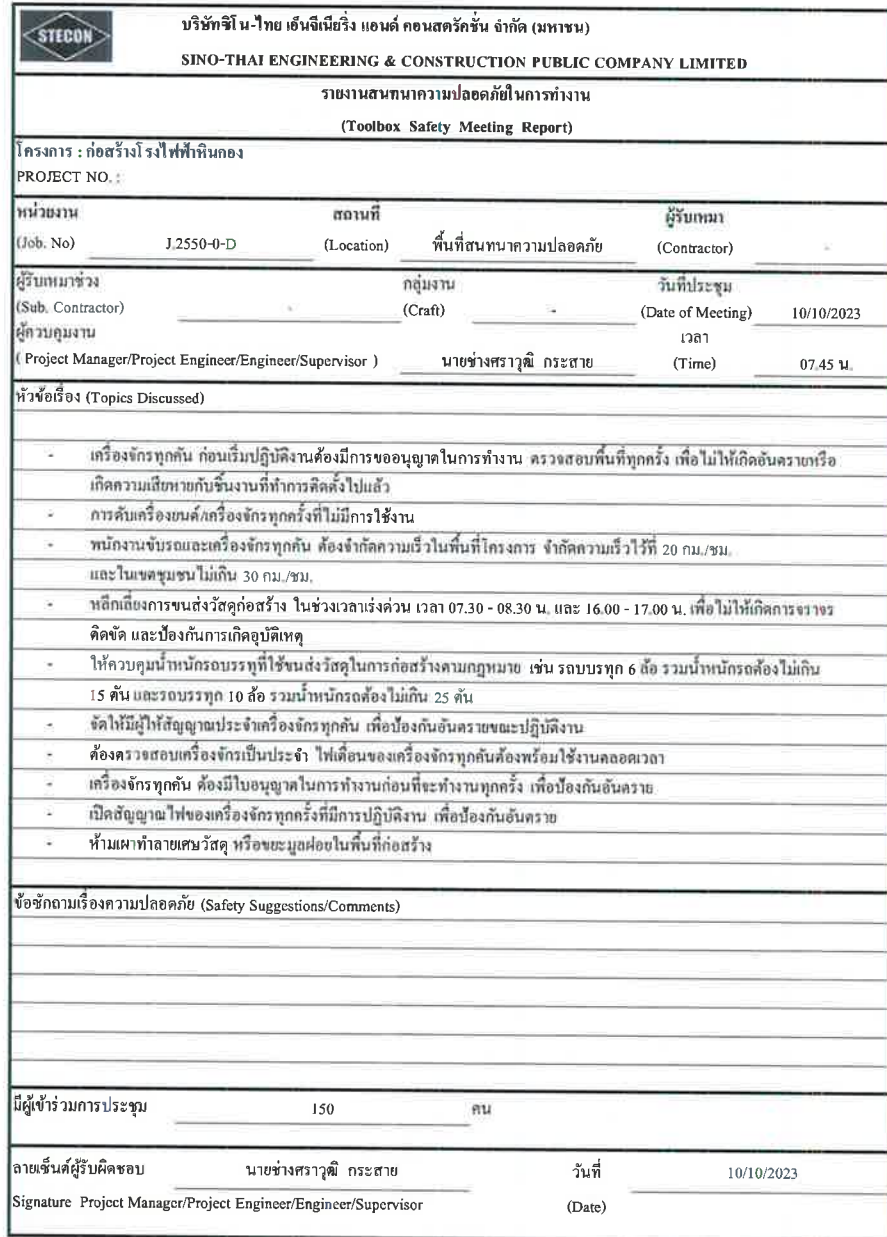 STECON
บริษัทซิโน-ไทย เอ็นจีเนียริ่ง แอนด์ คอนสตรัคชั่น จำกัด (มหาชน)
SINO-THAI ENGINEERING & CONSTRUCTION PUBLIC COMPANY LIMITED
รายงานสนทนาความปลอดภัยในการทำงาน
(Toolbox Safety Meeting Report)
โครงการ : ก่อสร้างโรงไฟฟ้าหินกอง
PROJECT NO. :
หน่วยงาน สถานที่ ผู้รับเหมา
(Job. No) J.2550-0-D (Location) พื้นที่สนทนาความปลอดภัย (Contractor) -
ผู้รับเหมาช่วง กลุ่มงาน วันที่ประชุม
(Sub. Contractor) - (Craft) - (Date of Meeting) 10/10/2023
ผู้ควบคุมงาน เวลา
( Project Manager/Project Engineer/Engineer/Supervisor ) นายช่างศราวุฒิ กระสาย (Time) 07.45 น.
หัวข้อเรื่อง (Topics Discussed)
- เครื่องจักรทุกคัน ก่อนเริ่มปฏิบัติงานต้องมีการขออนุญาตในการทำงาน ตรวจสอบพื้นที่ทุกครั้ง เพื่อไม่ให้เกิดอันตรายหรือ
เกิดความเสียหายกับชิ้นงานที่ทำการติดตั้งไปแล้ว
- การดับเครื่องยนต์/เครื่องจักรทุกครั้งที่ไม่มีการใช้งาน
- พนักงานขับรถและเครื่องจักรทุกคัน ต้องจำกัดความเร็วในพื้นที่โครงการ จำกัดความเร็วไว้ที่ 20 กม./ชม.
และในเขตชุมชนไม่เกิน 30 กม./ชม.
- หลีกเลี่ยงการขนส่งวัสดุก่อสร้าง ในช่วงเวลาเร่งด่วน เวลา 07.30 - 08.30 น. และ 16.00 - 17.00 น. เพื่อไม่ให้เกิดการจราจร
ติดขัด และป้องกันการเกิดอุบัติเหตุ
- ให้ควบคุมน้ำหนักรถบรรทุที่ใช้ขนส่งวัสดุในการก่อสร้างตามกฎหมาย เช่น รถบบรทุก 6 ล้อ รวมน้ำหนักรถต้องไม่เกิน
15 ตัน และรถบรรทุก 10 ล้อ รวมน้ำหนักรถต้องไม่เกิน 25 ตัน
- จัดให้มีผู้ให้สัญญาณประจำเครื่องจักรทุกคัน เพื่อป้องกันอันตรายขณะปฏิบัติงาน
- ต้องตรวจสอบเครื่องจักรเป็นประจำ ไฟเตือนของเครื่องจักรทุกคันต้องพร้อมใช้งานตลอดเวลา
- เครื่องจักรทุกคัน ต้องมีใบอนุญาตในการทำงานก่อนที่จะทำงานทุกครั้ง เพื่อป้องกันอันตราย
- เปิดสัญญาณไฟของเครื่องจักรทุกครั้งที่มีการปฏิบัติงาน เพื่อป้องกันอันตราย
- ห้ามเผาทำลายเศษวัสดุ หรือขยะมูลฝอยในพื้นที่ก่อสร้าง
ข้อซักถามเรื่องความปลอดภัย (Safety Suggestions/Comments)
มีผู้เข้าร่วมการประชุม 150 คน
ลายเซ็นต์ผู้รับผิดชอบ นายช่างศราวุฒิ กระสาย วันที่ 10/10/2023
Signature Project Manager/Project Engineer/Engineer/Supervisor (Date)